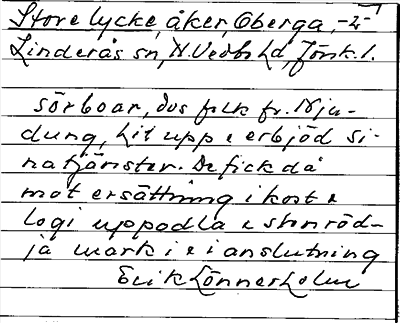 Store lycke, åker, Oberga, -2-
Linderås sn, N. Vedbo hd, Jönk. l.
sörboar, dvs folk fr. Nju-
dung, hit upp & erbjöd si-
na tjänster. De fick då
mot ersättning i kost &
logi uppodla & stenröd-
ja mark i & i anslutning
Erik Lönnerholm